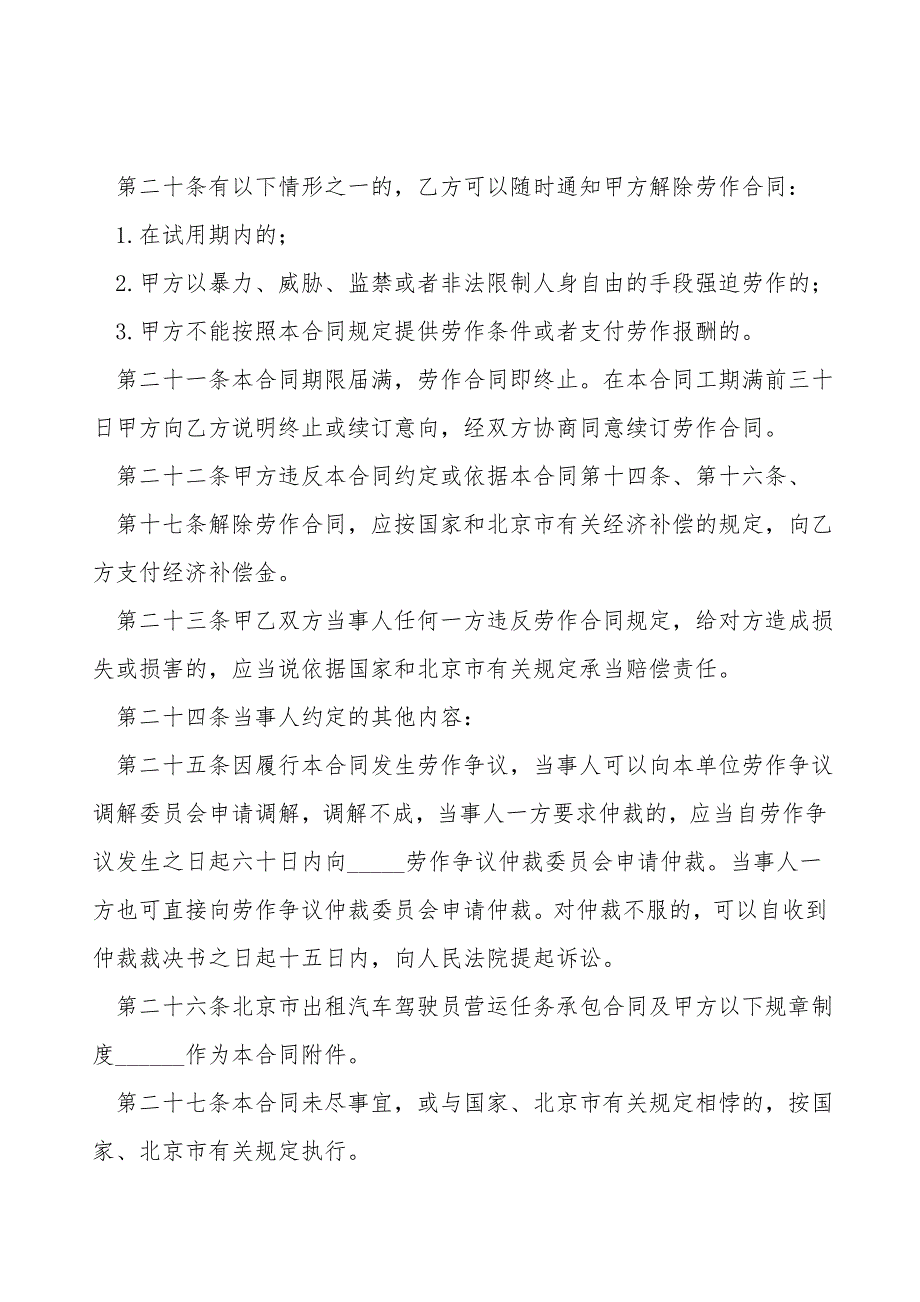 第二十条有以下情形之一的，乙方可以随时通知甲方解除劳作合同：
1.在试用期内的；
2.甲方以暴力、威胁、监禁或者非法限制人身自由的手段强迫劳作的；
3.甲方不能按照本合同规定提供劳作条件或者支付劳作报酬的。
第二十一条本合同期限届满，劳作合同即终止。在本合同工期满前三十
日甲方向乙方说明终止或续订意向，经双方协商同意续订劳作合同。
第二十二条甲方违反本合同约定或依据本合同第十四条、第十六条、
第十七条解除劳作合同，应按国家和北京市有关经济补偿的规定，向乙
方支付经济补偿金。
第二十三条甲乙双方当事人任何一方违反劳作合同规定，给对方造成损
失或损害的，应当说依据国家和北京市有关规定承当赔偿责任。
第二十四条当事人约定的其他内容：
第二十五条因履行本合同发生劳作争议，当事人可以向本单位劳作争议
调解委员会申请调解，调解不成，当事人一方要求仲裁的，应当自劳作争
议发生之日起六十日内向_____劳作争议仲裁委员会申请仲裁。当事人一
方也可直接向劳作争议仲裁委员会申请仲裁。对仲裁不服的，可以自收到
仲裁裁决书之日起十五日内，向人民法院提起诉讼。
第二十六条北京市出租汽车驾驶员营运任务承包合同及甲方以下规章制
度______作为本合同附件。
第二十七条本合同未尽事宜，或与国家、北京市有关规定相悖的，按国
家、北京市有关规定执行。